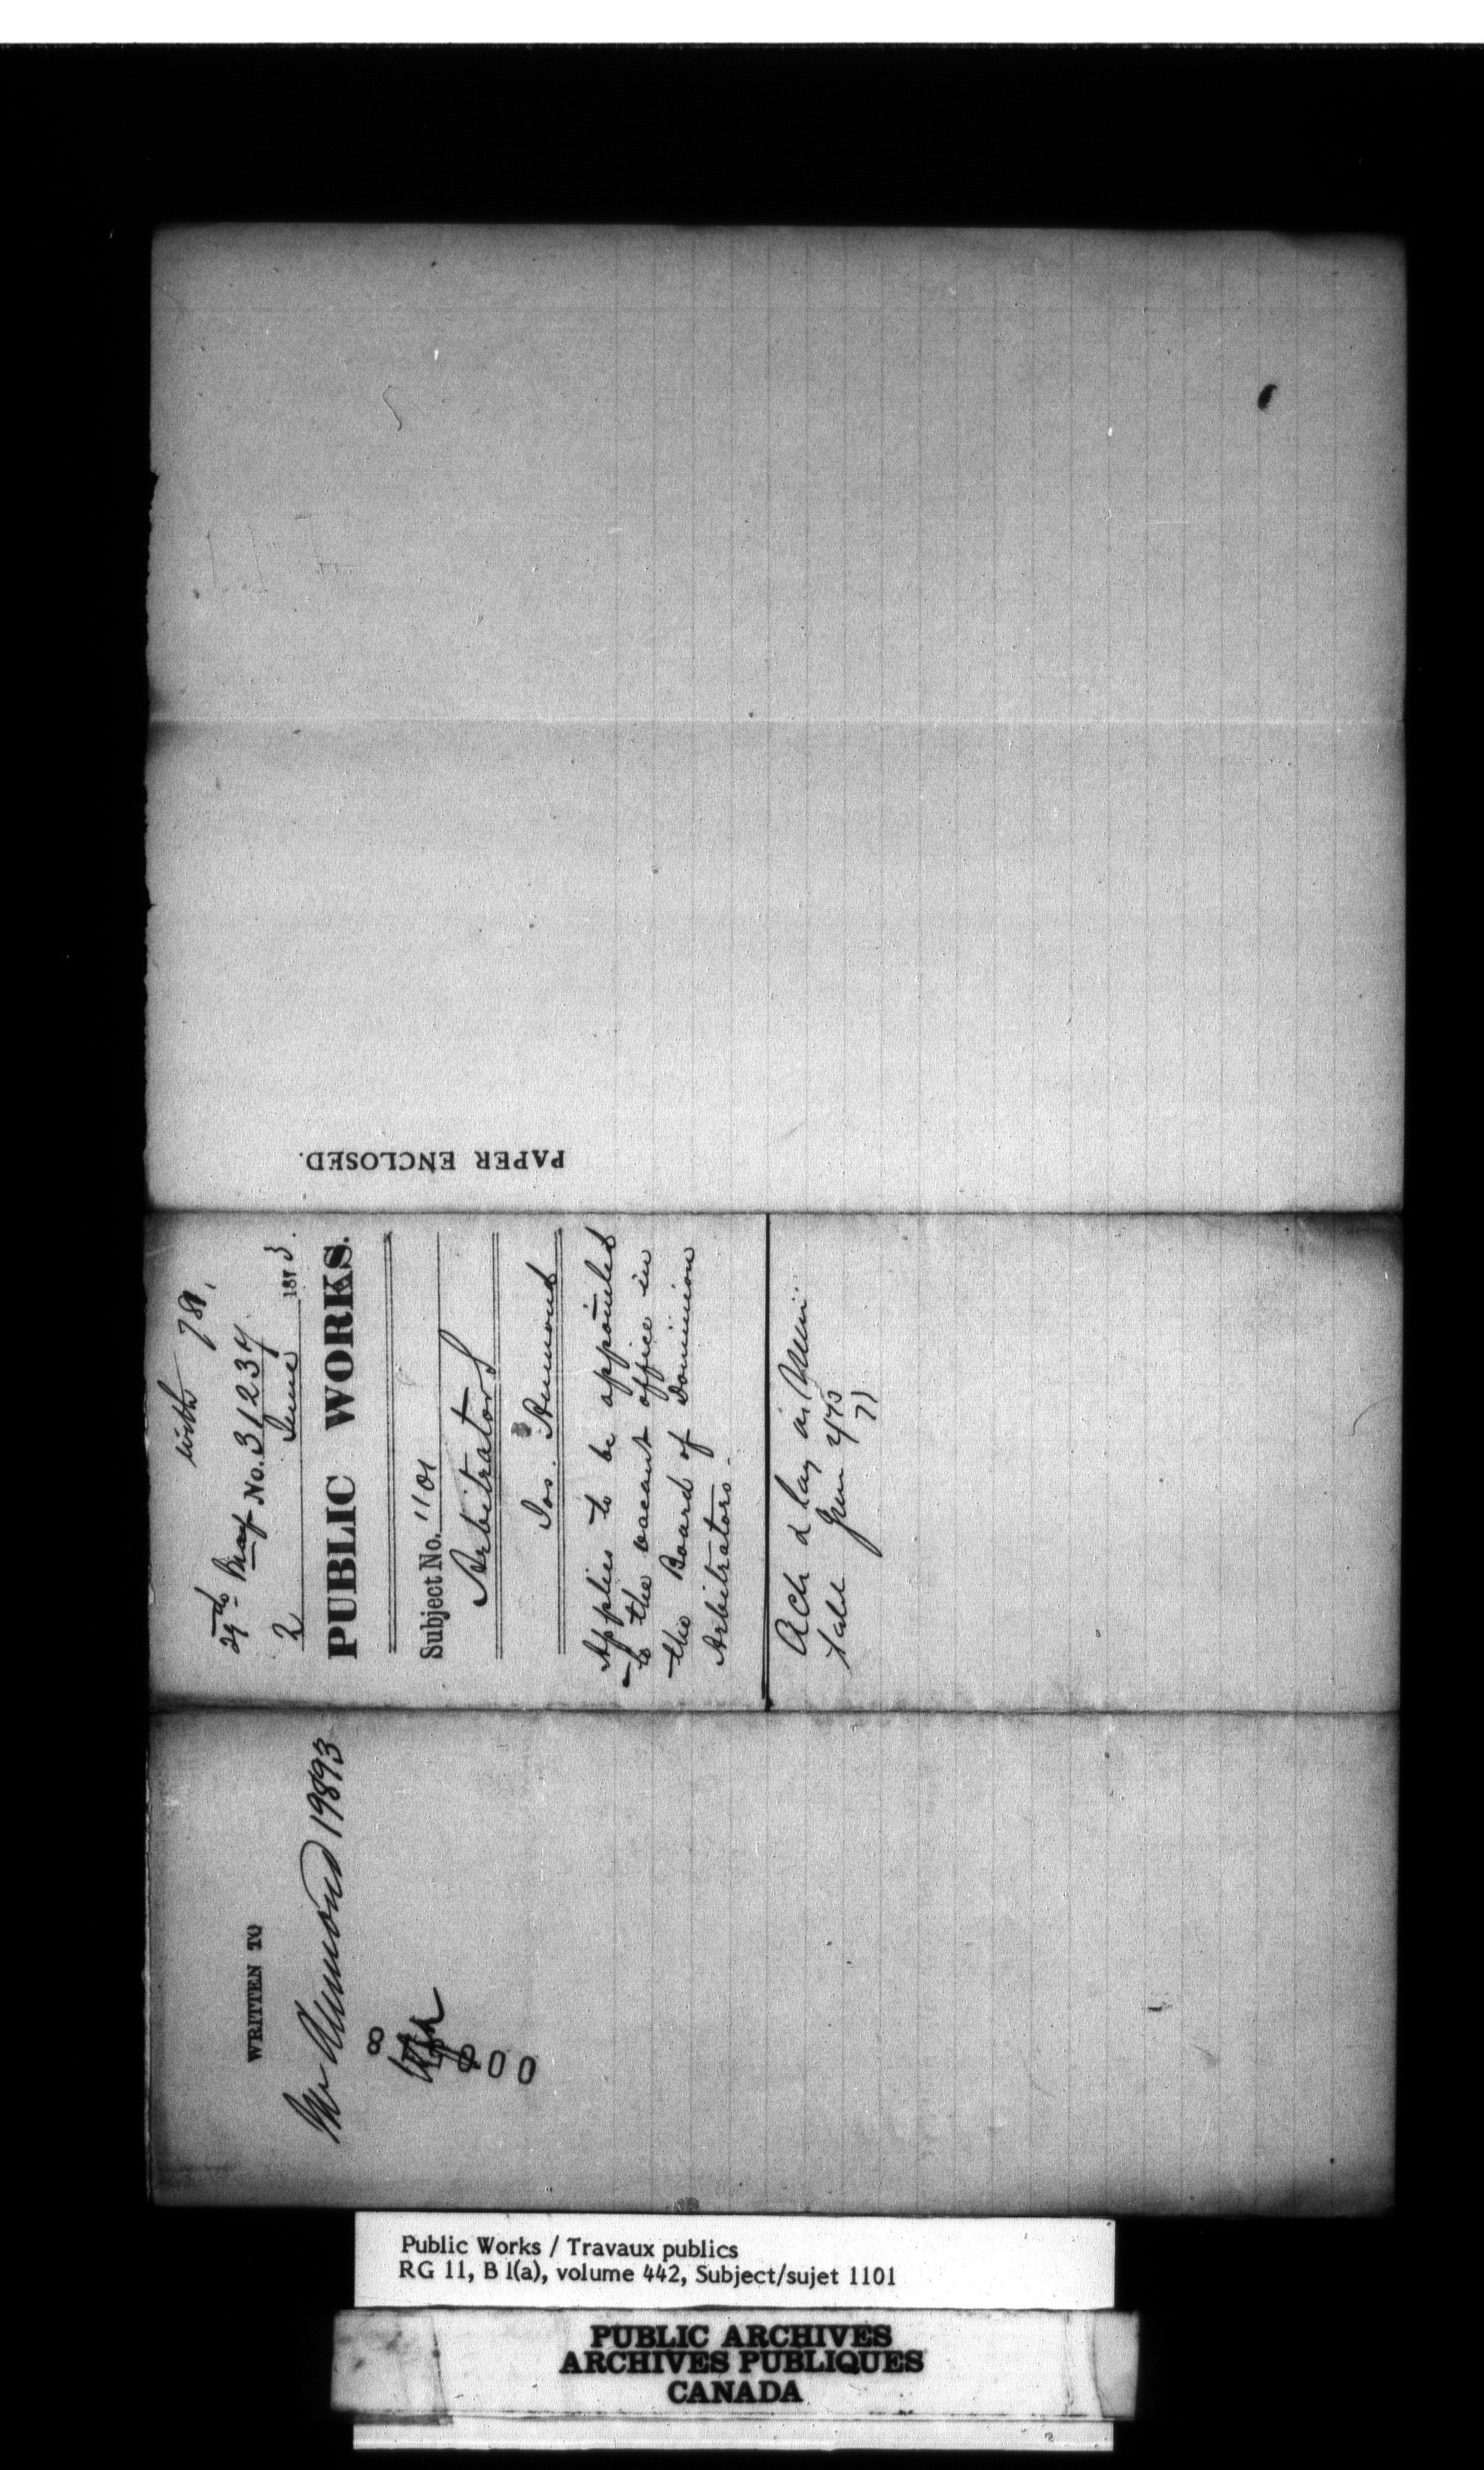 PAPER ENCLOSED.
with 781.
29th May No. 31237
2 June 1873.
PUBLIC WORKS.
Subject No. 1101
Arbitrators
Jos. Aumond
Applies to be appointed
to the vacant office in
the Board of Dominion
Arbitrators.
Ack & lay
WRITTEN TO
Mr Aumond 19893
Public Works / Travaux publics
RG 11, B 1(a), volume 442, Subject/sujet 1101
PUBLIC ARCHIVES
ARCHIVES PUBLIQUES
CANADA